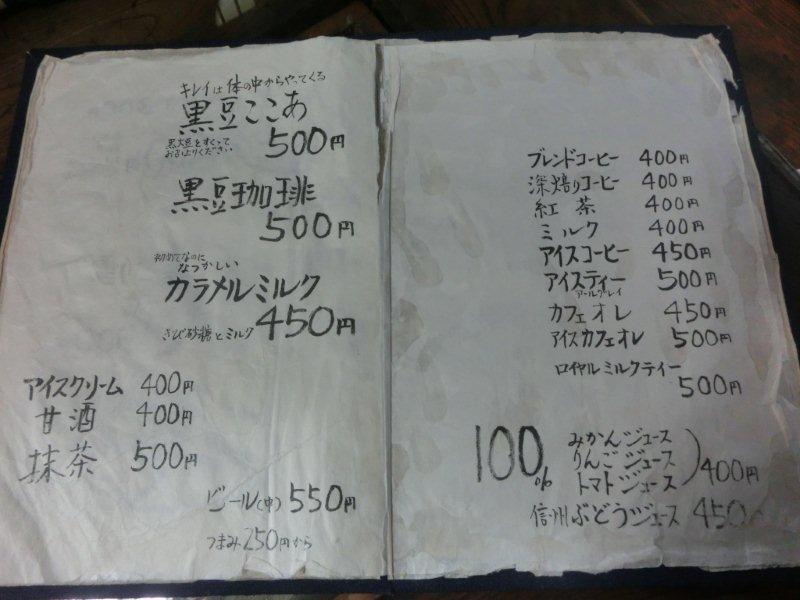 キレイは体の中からやってくる
黒豆ここあ
黒大豆をすくって
お召上りください
500円
黒豆珈琲
500円
初めてなのに
なつかしい
カラメルミルク
きび砂糖とミルク 450円
アイスクリーム 400円
甘酒 400円
抹茶 500円
ビール(中) 550円
つまみ250円から
ブレンドコーヒー 400円
深焙りコーヒー 400円
紅茶 400円
ミルク 400円
アイスコーヒー 450円
アイスティー 500円
アールグレイ
カフェオレ 450円
アイスカフェオレ 500円
ロイヤルミルクティー
500円
100%
みかんジュース
りんごジュース
トマトジュース
400円
信州ぶどうジュース 450